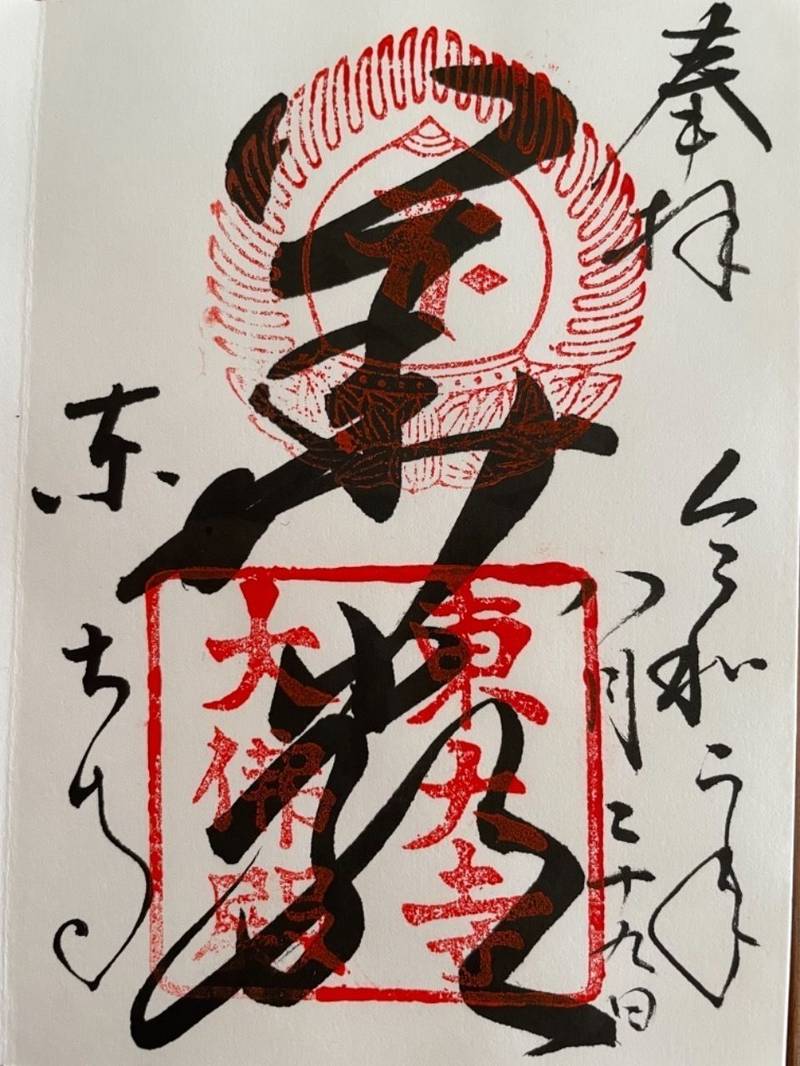 奉拝
令和二年
八月二十九日
華嚴
東大寺
大佛殿
東大寺